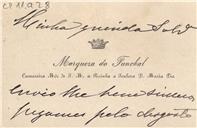 CP 11.928
Minha querida
Marqueza do Funchal
Camareira Mór de S. M. a Rainha a Senhora D. Maria Pia
envio-lhe
pezames pelo desgosto